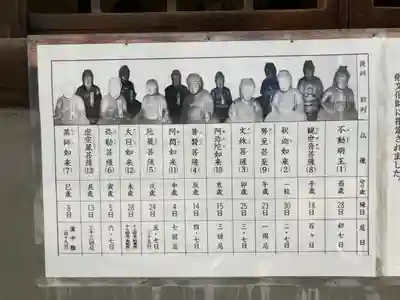 術文化財に指定されました。
後列 前列 仏像 縁日 忌日
不動明王(1) 酉歳 28日 初七日
観世音菩薩(8) 子歳 18日 百ヶ日
釈迦如来(2) 一般 30日 二・七日
勢至菩薩(9) 午歳 23日 一周忌
文殊菩薩(3) 卯歳 25日 三・七日
阿弥陀如来(10) 亥歳 15日 三回忌
普賢菩薩(4) 辰歳 14日 四・七日
阿閦如来(11) 申歳 4日 七回忌
地蔵菩薩(5) 戌歳 24日 五・七日
大日如来(12) 未歳 28日
弥勒菩薩(6) 寅歳 5日 六・七日
虚空蔵菩薩(13) 丑歳 13日 三十三回忌
薬師如来(7) 巳歳 8日 満中陰